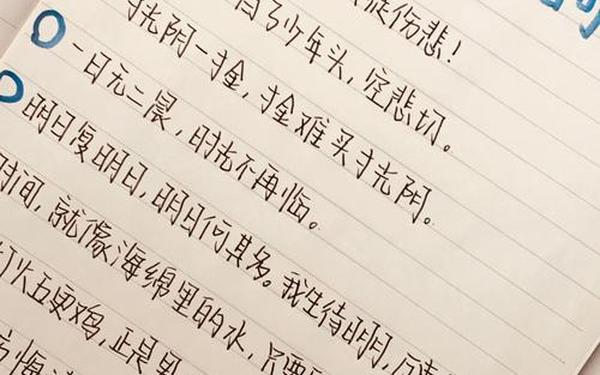 徒伤悲！
了少年头，空悲切。
寸光阴一寸金，寸金难买寸光阴。
一日无二晨，时光不再临。
明日复明日，明日何其多。我生待明日，万事
时间，就像海绵里的水，只要
灯火五更鸡，正是男
方悔